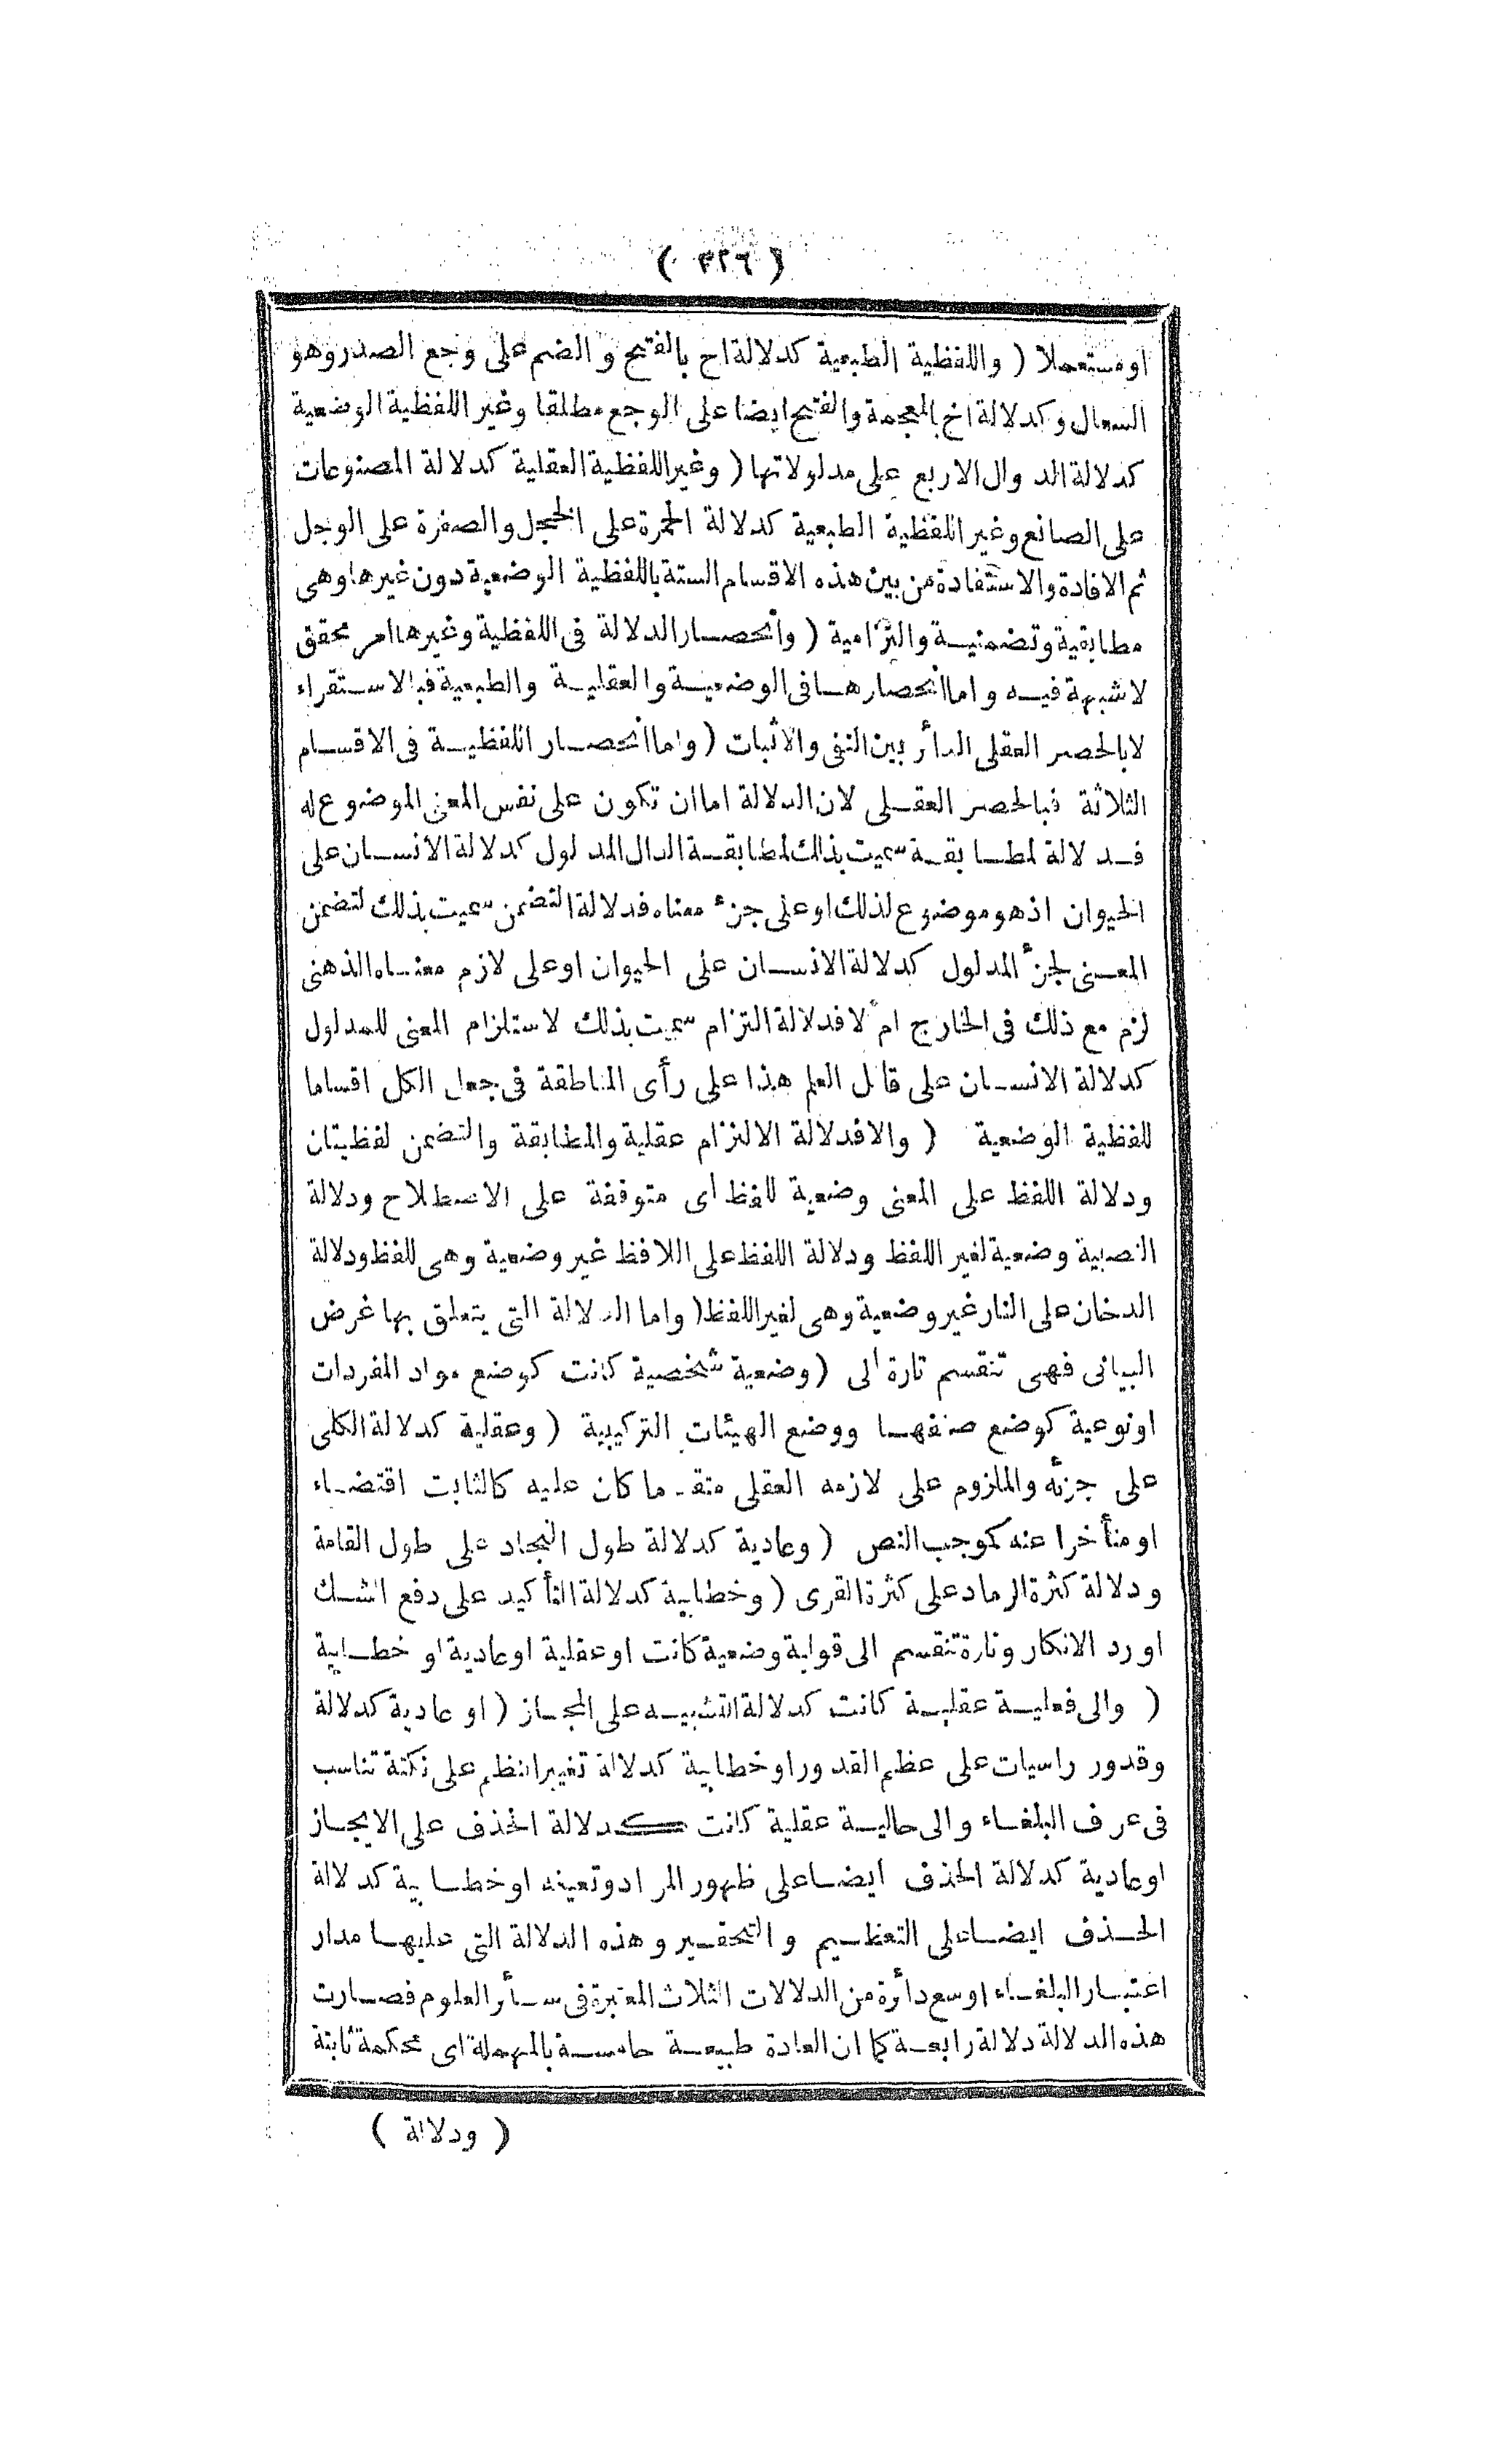 ( ٣٢٦ )
او مستعملا ( واللفظية الطبعية كدلالة اح بالفتح والضم على وجع الصدر وهو
السعال وكدلالة اخ بالمعجمة والفتح ايضا على الوجع مطلقا وغير اللفظية الوضعية
كدلالة الدوال الاربع على مدلولاتها ( وغير اللفظية العقلية كدلالة المصنوعات
على الصانع وغير اللفظية الطبعية كدلالة الحمرة على الخجل والصفرة على الوجل
ثم الافادة والاستفادة من بين هذه الاقسام الستة باللفظية الوضعية دون غيرها وهى
مطابقية وتضمنيـة والتزامية ( وانحصـار الدلالة فى اللفظية وغيرها امر محقق
لا شبهة فيـه واما انحصارهـا فى الوضعيـة والعقليـة والطبعية فبالاسـتقراء
لا بالحصر العقلى الدائر بين النفى والاثبات ( واما انحصـار اللفظيـة فى الاقسـام
الثلاثة فبالحصر العقـلى لان الدلالة اما ان تكون على نفس المعنى الموضوع له
فـدلالة لمطـابقـة سميت بذلك لمطابقـة الدال المدلول كدلالة الانسـان على
الحيوان اذ هو موضوع لذلك او على جزء معناه فدلالة التضمن سميت بذلك لتضمن
المعـنى لجزأ المدلول كدلالة الانسـان على الحيوان او على لازم معنـاه الذهنى
لزم مع ذلك فى الخارج ام لا فدلالة التزام سميت بذلك لاستلزام المعنى للمدلول
كدلالة الانسـان على قابل العلم هذا على رأى المناطقة فى جعل الكل اقساما
للفظية الوضعية ( والا فدلالة الالتزام عقلية والمطابقة والتضمن لفظيتان
ودلالة اللفظ على المعنى وضعية للفظ اى متوقفة على الاصطلاح ودلالة
النصبية وضعية لغير اللفظ ودلالة اللفظ على اللافظ غير وضعية وهى للفظ ودلالة
الدخان على النار غير وضعية وهى لغير اللفظ ( واما الدلالة التى يتعلق بها غرض
البيانى فهى تنقسم تارة الى ( وضعية شخصية كانت كوضع مواد المفردات
او نوعية كوضع صنفهـا ووضع الهيئات التركيبية ( وعقلية كدلالة الكلى
على جزئه والملزوم على لازمه العقلى متقـدما كان عليه كالثابت اقتضـاء
او متأخرا عنه كموجب النص ( وعادية كدلالة طول النجاد على طول القامة
ودلالة كثرة الرماد على كثرة القرى ( وخطابية كدلالة التأكيد على دفع الشـك
او رد الانكار وتارة تنقسم الى قولية وضعية كانت او عقلية او عادية او خطـابية
( والى فعليـة عقليـة كانت كدلالة التشبيـه على المجـاز ( او عادية كدلالة
وقدور راسيات على عظم القدور او خطابية كدلالة تغيير النظم على نكتة تناسب
فى عرف البلغـاء والى حاليـة عقلية كانت كـدلالة الحذف على الايجـاز
او عادية كدلالة الحذف ايضـا على ظهور المراد وتعينه او خطـابية كدلالة
الحـذف ايضـا على التعظـيم والتحقـير وهذه الدلالة التى عليهـا مدار
اعتبـار البلغـاء اوسع دائرة من الدلالات الثلاث المعتبرة فى سـائر العلوم فصـارت
هذه الدلالة دلالة رابعـة كما ان العادة طبيعـة خامسـة بالمهملة اى محكمة ثابتة
( ودلالة )